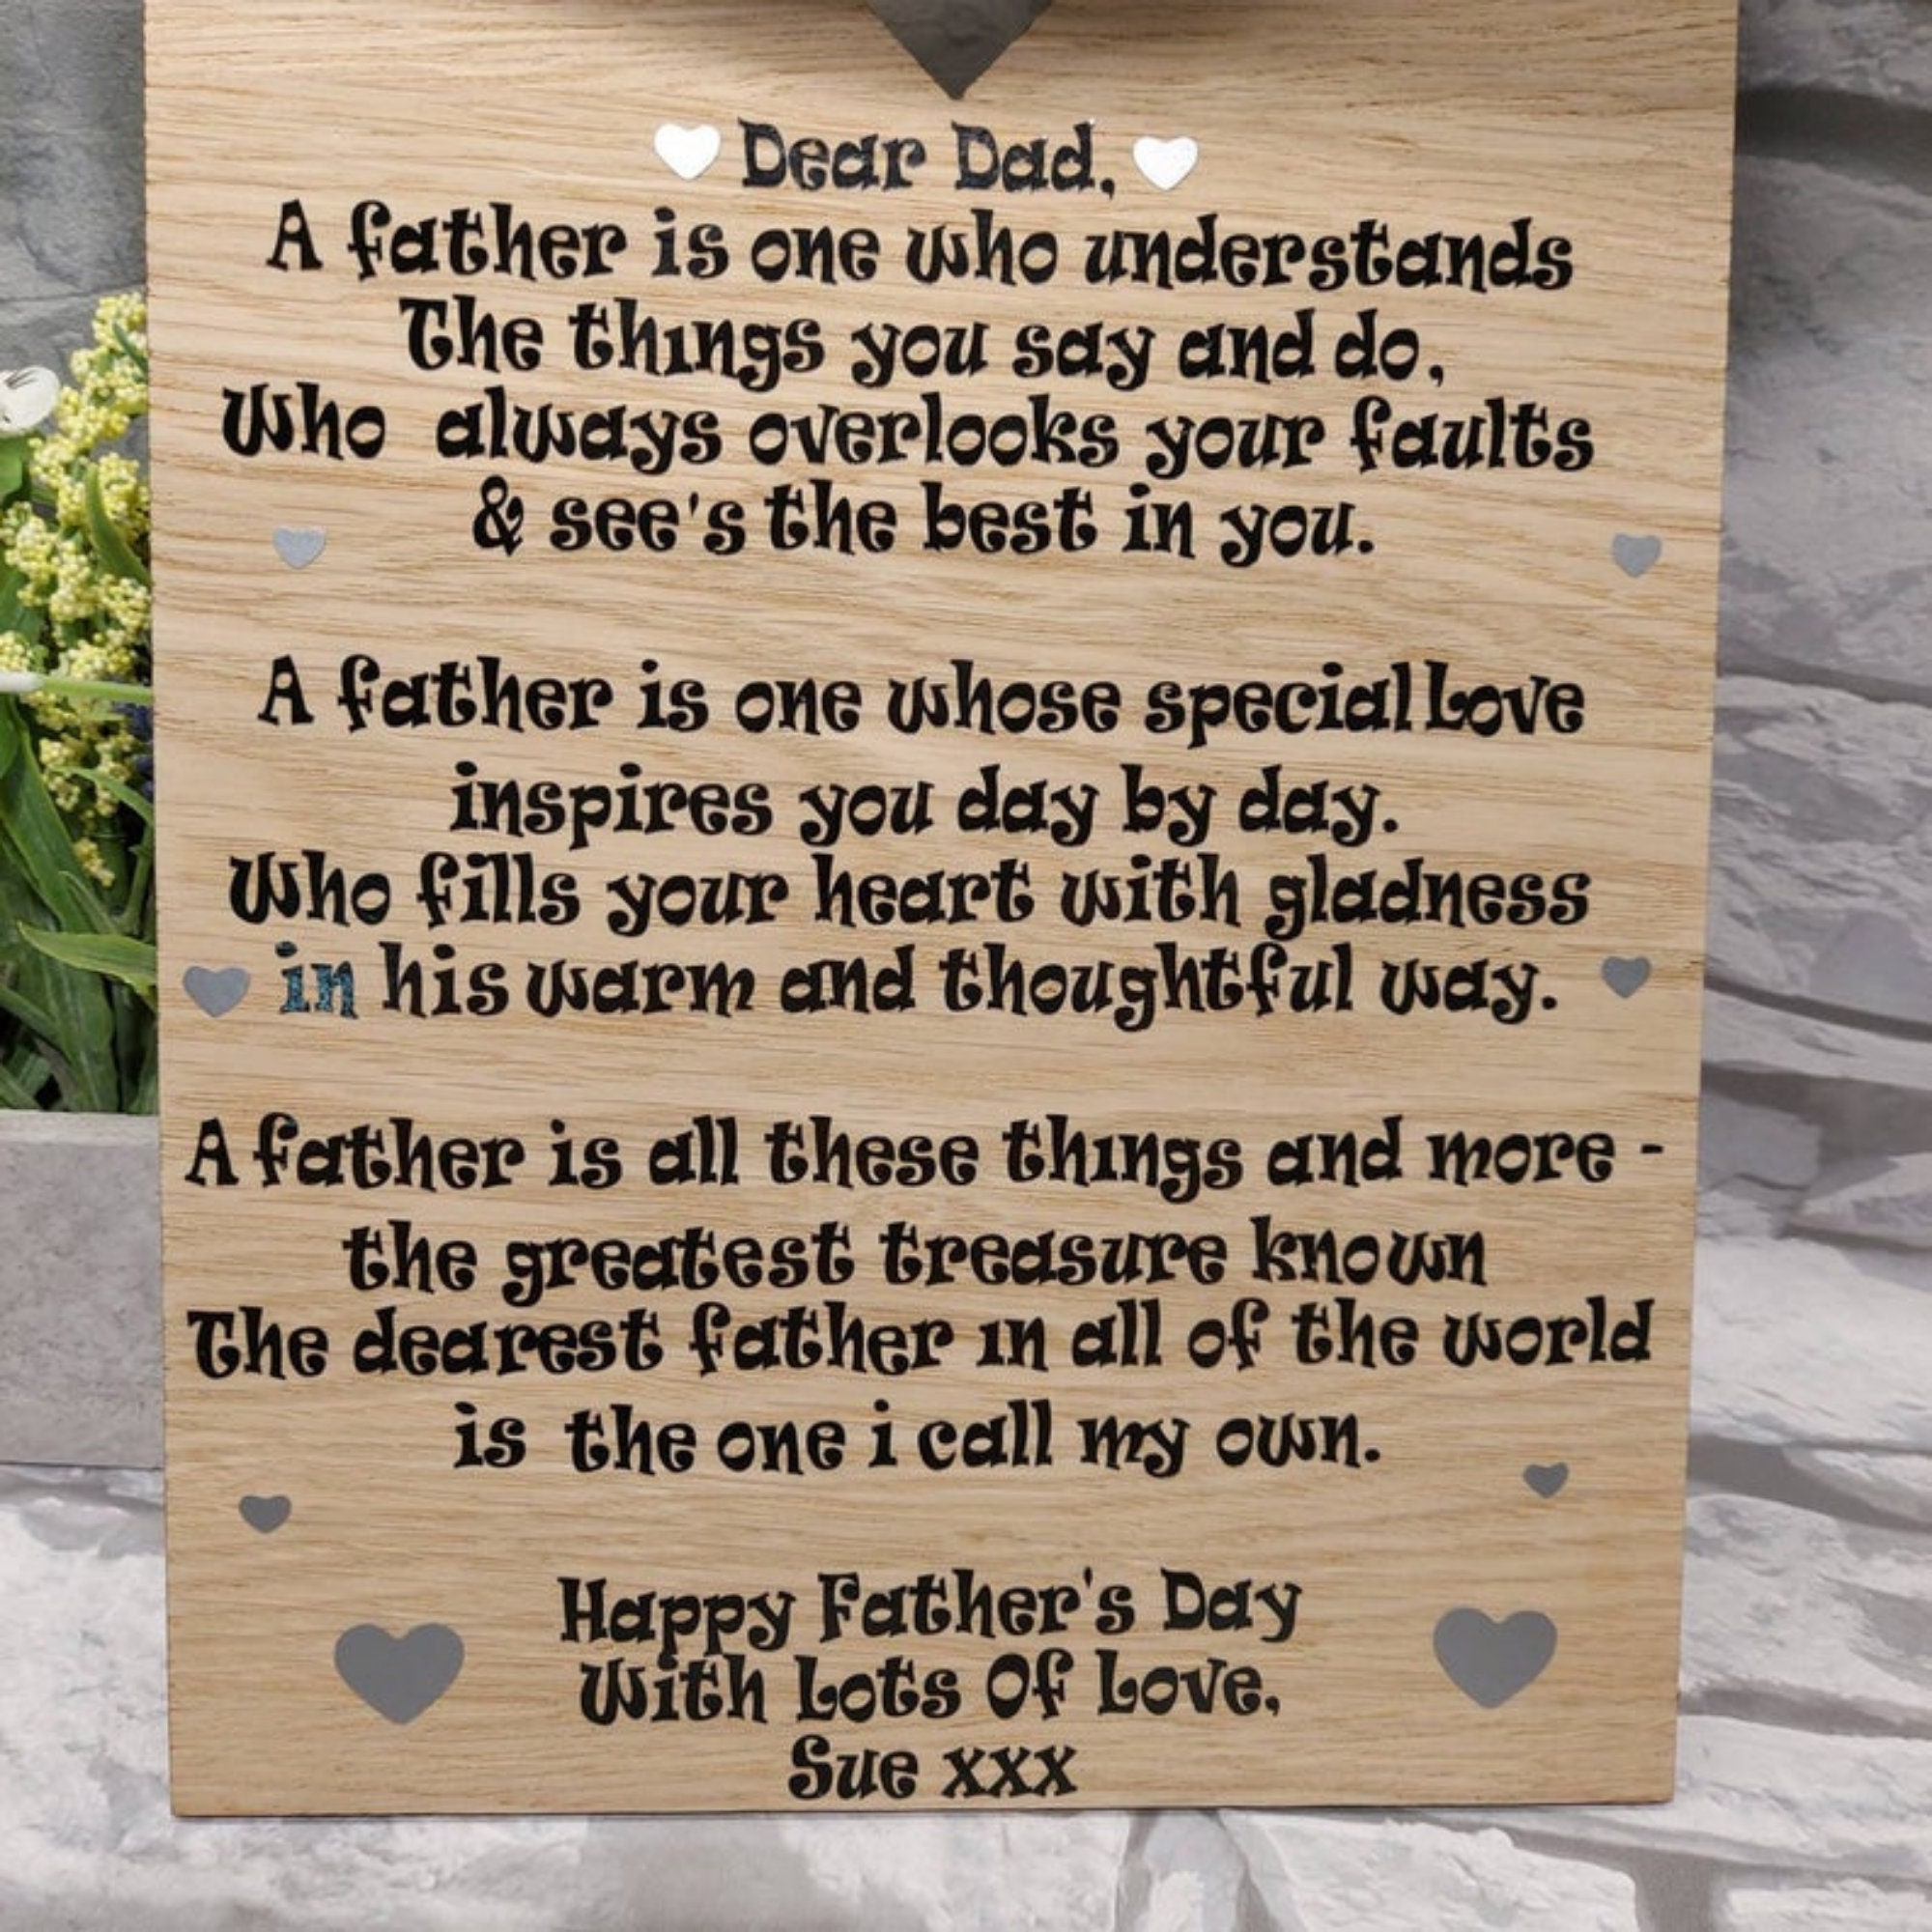 Dear Dad,
A father is one who understands
The things you say and do,
Who always overlooks your faults
& see's the best in you.
A father is one whose special Love
inspires you day by day.
Who fills your heart with gladness
in his warm and thoughtful way.
A father is all these things and more -
the greatest treasure known
The dearest father in all of the world
is the one i call my own.
Happy Father's Day
With Lots Of Love,
Sue xxx